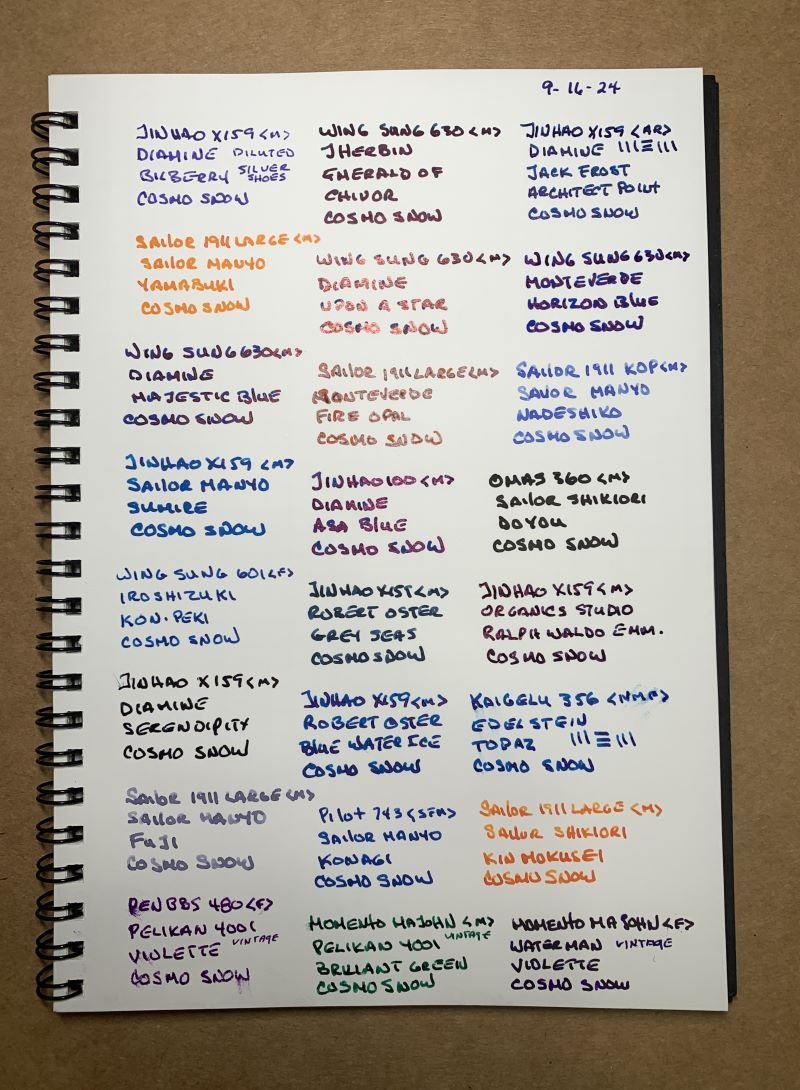 9-16-24
JINHAO X159 <M>
DIAMINE DILUTED
BILBERRY SILVER SHOES
COSMO SNOW
WING SUNG 630 <M>
JHERBIN
EMERALD OF
CHIVOR
COSMO SNOW
JINHAO X159 <AR>
DIAMINE
JACK FROST
ARCHITECT POINT
COSMO SNOW
SAILOR 1911 LARGE <M>
SAILOR MANYO
YAMABUKI
COSMO SNOW
WING SUNG 630 <M>
DIAMINE
UPON A STAR
COSMO SNOW
WING SUNG 630 <M>
MONTEVERDE
HORIZON BLUE
COSMO SNOW
WING SUNG 630 <M>
DIAMINE
MAJESTIC BLUE
COSMO SNOW
SAILOR 1911 LARGE <M>
MONTEVERDE
FIRE OPAL
COSMO SNOW
SAILOR 1911 KOP <M>
SAILOR MANYO
NADESHIKO
COSMO SNOW
JINHAO X159 <M>
SAILOR MANYO
SUMIRE
COSMO SNOW
JINHAO 100 <M>
DIAMINE
ASA BLUE
COSMO SNOW
OMAS 360 <M>
SAILOR SHIKIORI
DOYOU
COSMO SNOW
WING SUNG 601 <F>
IROSHIZUKI
KON-PEKI
COSMO SNOW
JINHAO X159 <M>
ROBERT OSTER
GREY SEAS
COSMO SNOW
JINHAO X159 <M>
ORGANICS STUDIO
RALPH WALDO EMM.
COSMO SNOW
JINHAO X159 <M>
DIAMINE
SERENDIPITY
COSMO SNOW
JINHAO X159 <M>
ROBERT OSTER
BLUE WATER ICE
COSMO SNOW
KAIGELU 356 <NMF>
EDELSTEIN
TOPAZ
COSMO SNOW
SAILOR 1911 LARGE <M>
SAILOR MANYO
FUJI
COSMO SNOW
PILOT 743 <SFM>
SAILOR MANYO
KONAGI
COSMO SNOW
SAILOR 1911 LARGE <M>
SAILOR SHIKIORI
KIN MOKUSEI
COSMO SNOW
PENBBS 480 <F>
PELIKAN 4001
VIOLETTE VINTAGE
COSMO SNOW
MOMENTO MAJOHN <M>
PELIKAN 4001 VINTAGE
BRILLANT GREEN
COSMO SNOW
MOMENTO MAJOHN <F>
WATERMAN VINTAGE
VIOLETTE
COSMO SNOW